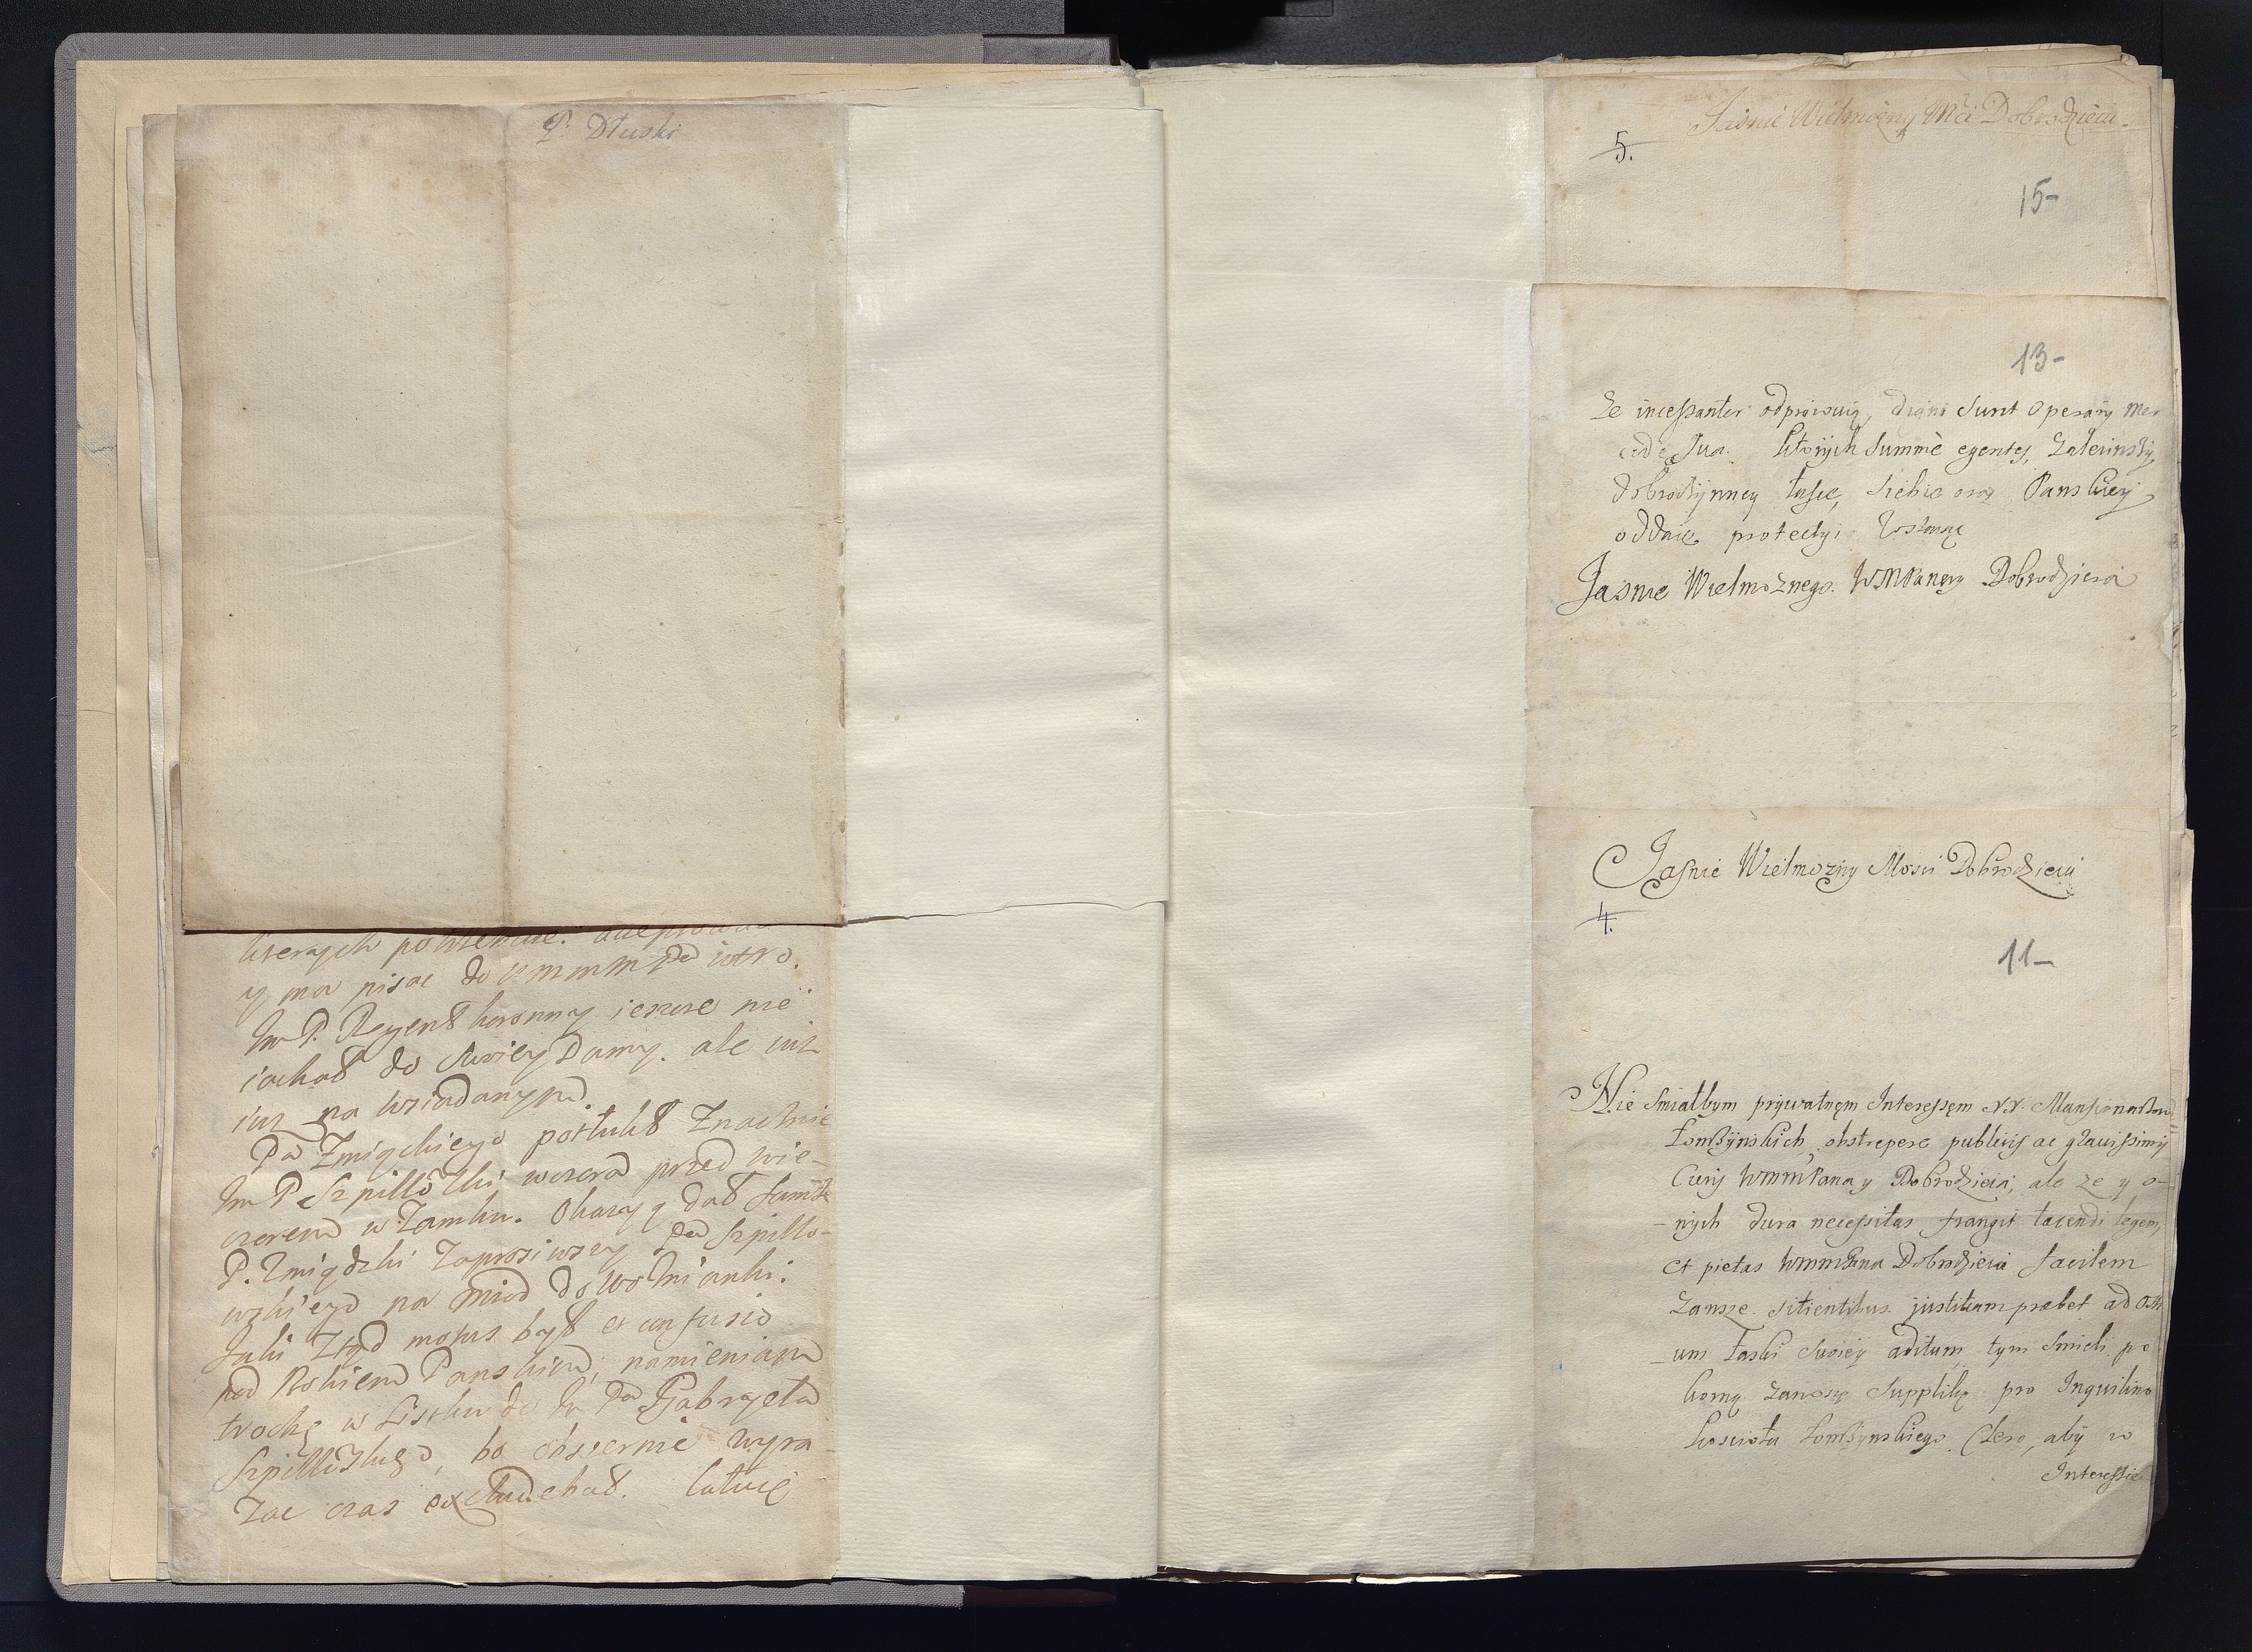 P. Dłuski
y ma pisac do WMMM Pa iutro.
Im P. Regent koronny ieszcze nie
iachał do swoiey Damy. ale iuz
iuz na wsiadanym.
Pa Zmigckiego potłukł znacznie
Im P Szpillowski wczora przed wie-
czorem w Zamku. Okazyą dał sam
P. Zmigdzki zaprosiwszy Pa Szpillo-
wskiego na miod do Woznianki.
Jaki ztąd motus był et confusio
pod Bokiem Panskim, namieniam
trochę w Listku do Im Pa Gabryela
Szpillowskiego, bo obszernie wyra-
zac czas excludebat.
Jasnie Wielmożny Mci Dobrodzieiu.
5.
15-
13-
Ze incessanter odprawuią, digni sunt Operarij mer
cede sua. Ktorych summè egentes,
dobroczynney łasce, siebie oraz Panskiey
oddaię protectyi zostaiąc
Jasnie Wielmoznego WMPana y Dobrodzieia
Jasnie Wielmozny Mosci Dobrodzieiu
4.
11-
Nie smiałbym prywatnęm Interessęm XX. Mansionarzow
Łomżynskich obstrepere publicis ac gravissimis
Curis WMMPana y Dobrodzieia, ale ze y o-
-nych dura necessitas frangit tacendi legem,
et pietas WMMPana Dobrodzieia facilem
zawsze sitientibus justitiam præbet ad
-um Łaski swoiey aditum, tym smieli po
korną zanoszę Supplikę pro Inquilino
koscioła Łomżynskiego Clero, aby w
Interessie